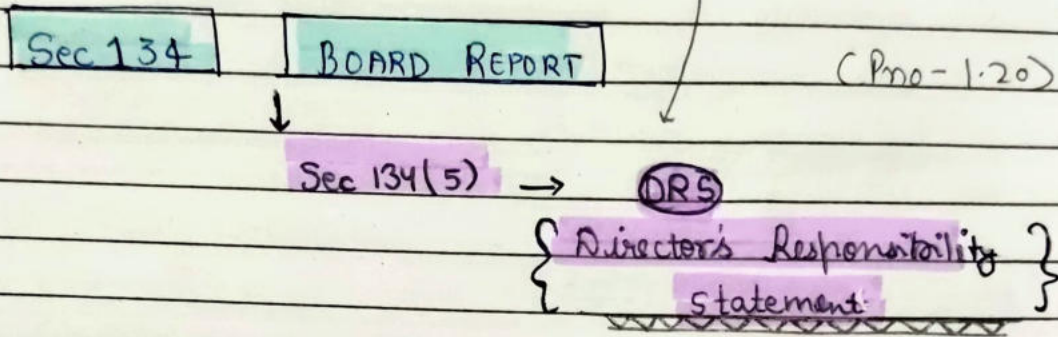 Sec 134 BOARD REPORT (Pno - 1.20)
↓
Sec 134(5) → DRS
{ Director's Responsibility }
Statement